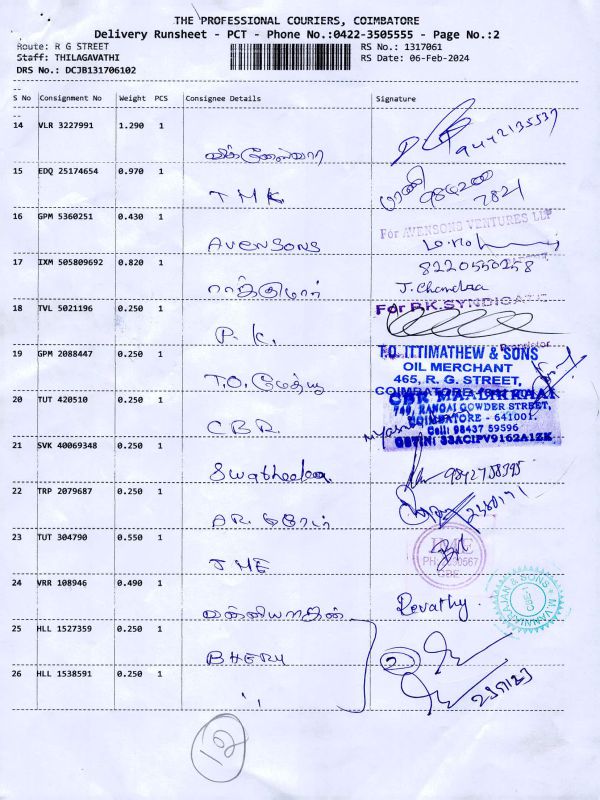 THE PROFESSIONAL COURIERS, COIMBATORE
Delivery Runsheet - PCT - Phone No.:0422-3505555 - Page No.:2
Route: R G STREET RS No.: 1317061
Staff: THILAGAVATHI RS Date: 06-Feb-2024
DRS No.: DCJB131706102
S No Consignment No Weight PCS Consignee Details Signature
14 VLR 3227991 1.290 1
15 EDQ 25174654 0.970 1 TMK 7821
16 GPM 5360251 0.430 1 AVENSONS For AVENSONS VENTURES LLP
17 IXM 505809692 0.820 1 ராஜ்குமார் 8220550258
J. Chandra
18 TVL 5021196 0.250 1 P.K. For P.K.SYNDICATE
Proprietor
19 GPM 2088447 0.250 1 T.O. மேத்யூ T.O. ITTIMATHEW & SONS
OIL MERCHANT
465, R. G. STREET,
COIMBATORE
20 TUT 420510 0.250 1 CBR CBR MAALIKKAAI
740, RANGAI GOWDER STREET,
COIMBATORE - 641001.
Cell: 98437 59596
GSTIN: 33ACIPV9162A1ZK
21 SVK 40069348 0.250 1
22 TRP 2079687 0.250 1 AR.
23 TUT 304790 0.550 1 JME
24 VRR 108946 0.490 1 Revathy.
25 HLL 1527359 0.250 1 BHERU 2
26 HLL 1538591 0.250 1 ,,